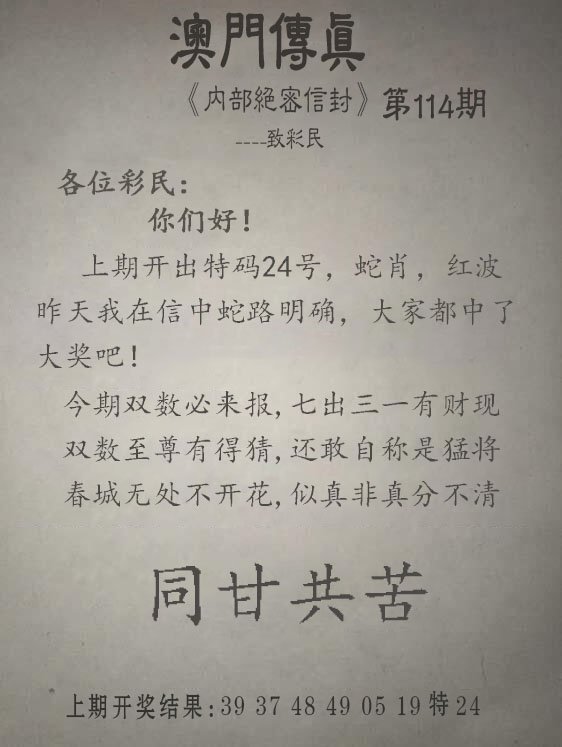 澳門傳眞
《内部絕密信封》第114期
----致彩民
各位彩民:
你们好!
上期开出特码24号，蛇肖，红波
昨天我在信中蛇路明确，大家都中了
大奖吧!
今期双数必来报,七出三一有财现
双数至尊有得猜,还敢自称是猛将
春城无处不开花,似真非真分不清
同甘共苦
上期开奖结果:39 37 48 49 05 19 特 24